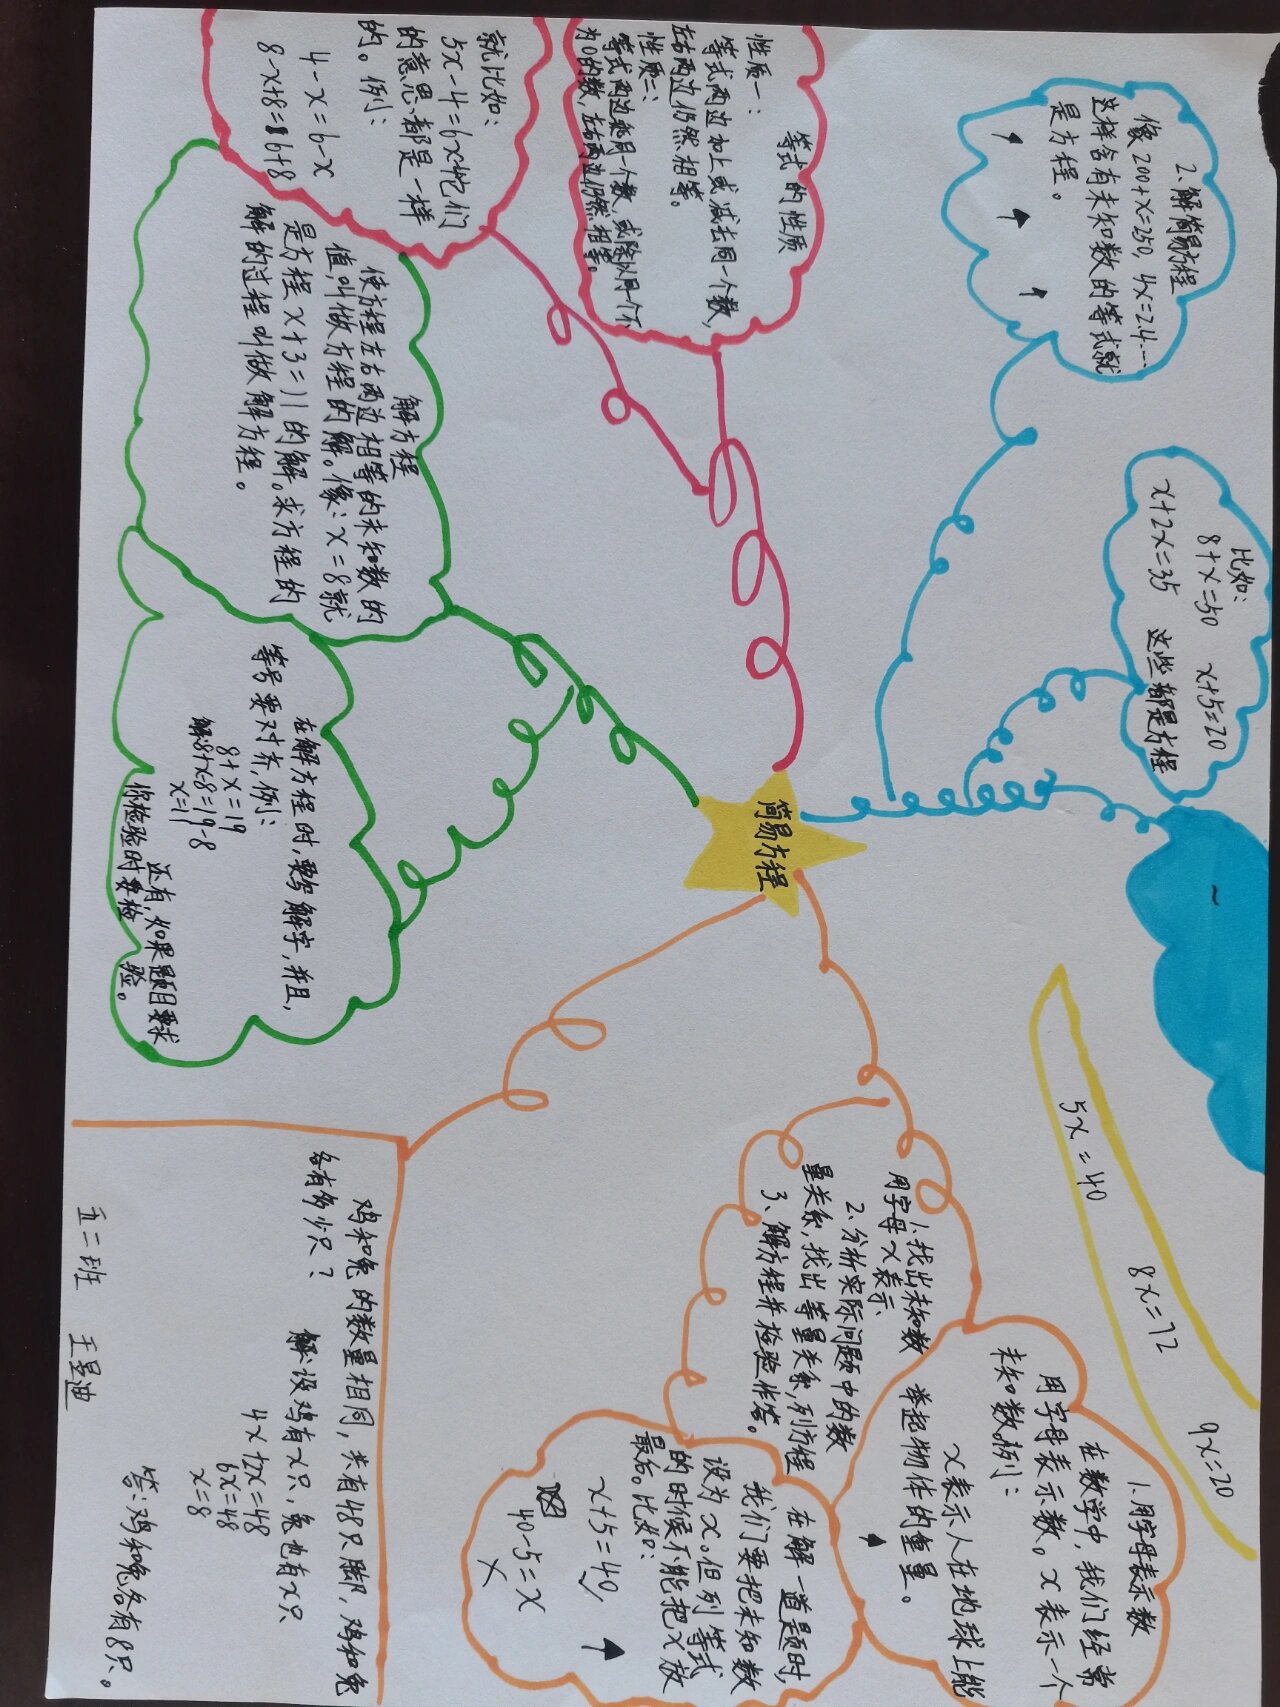 简易方程
2、解简易方程
像200+x=250, 4x=2.4……
这样含有未知数的等式就
是方程。
比如:
8+x=50 x+5=20
x+2x=35 这些都是方程
等式的性质
性质一:
等式两边加上或减去同一个数,
左右两边仍然相等。
性质二:
等式两边乘同一个数,或除以同一个不
为0的数,左右两边仍然相等。
就比如:
5x-4=6x 它们
的意思都是一样
的。例:
4-x=6-x
8-x+8=6+8
解方程
使方程左右两边相等的未知数的
值,叫做方程的解。像:x=8就
是方程x+3=11的解。求方程的
解的过程叫做解方程。
在解方程时,要写解字,并且,
等号要对齐,例:
8+x=19
解:8+x-8=19-8
x=11
还有,如果题目要求
你检验时要检
验。
5x=40
8x=72
9x=20
1.用字母表示数
在数学中,我们经常
用字母表示数。x表示一个
未知数,例:
x表示人在地球上能
举起物体的重量。
1.找出未知数
用字母x表示、
2.分析实际问题中的数
量关系,找出等量关系,列方程
3、解方程并检验作答。
在解一道题时,
我们要把未知数
设为x。但列等式
的时候不能把x放
最后。比如:
x+5=40,
40-5=x
鸡和兔的数量相同,共有48只脚,鸡和兔
各有多少只?
解:设鸡有x只,兔也有x只
4x+2x=48
6x=48
x=8
答:鸡和兔各有8只。
五二班